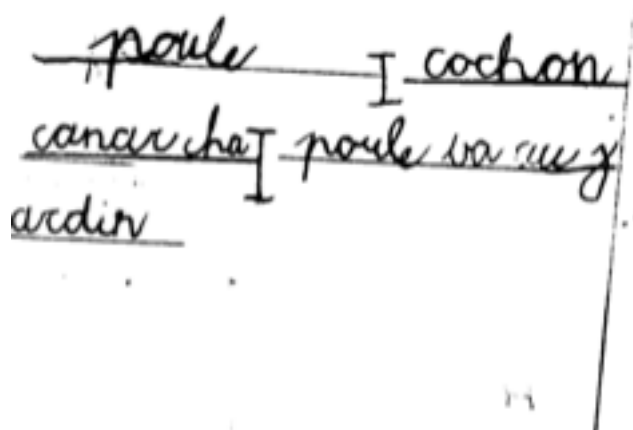 poule I cochon
canar cha I poule va au j
ardin